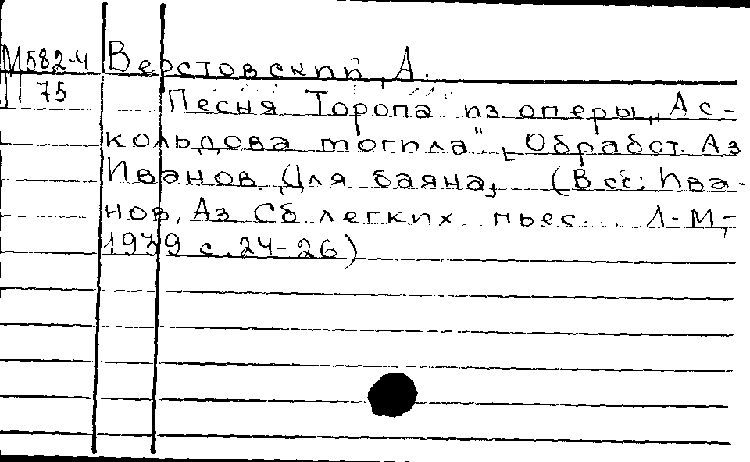 М582-4 Верстовский, А.
75 Песня Торопа из оперы „Ас-
кольдова могила", Обработ. Аз
Иванов. Для баяна, (В сб: Ива-
нов, Аз Сб легких пьес... Л-М,
1939 с.24-26)